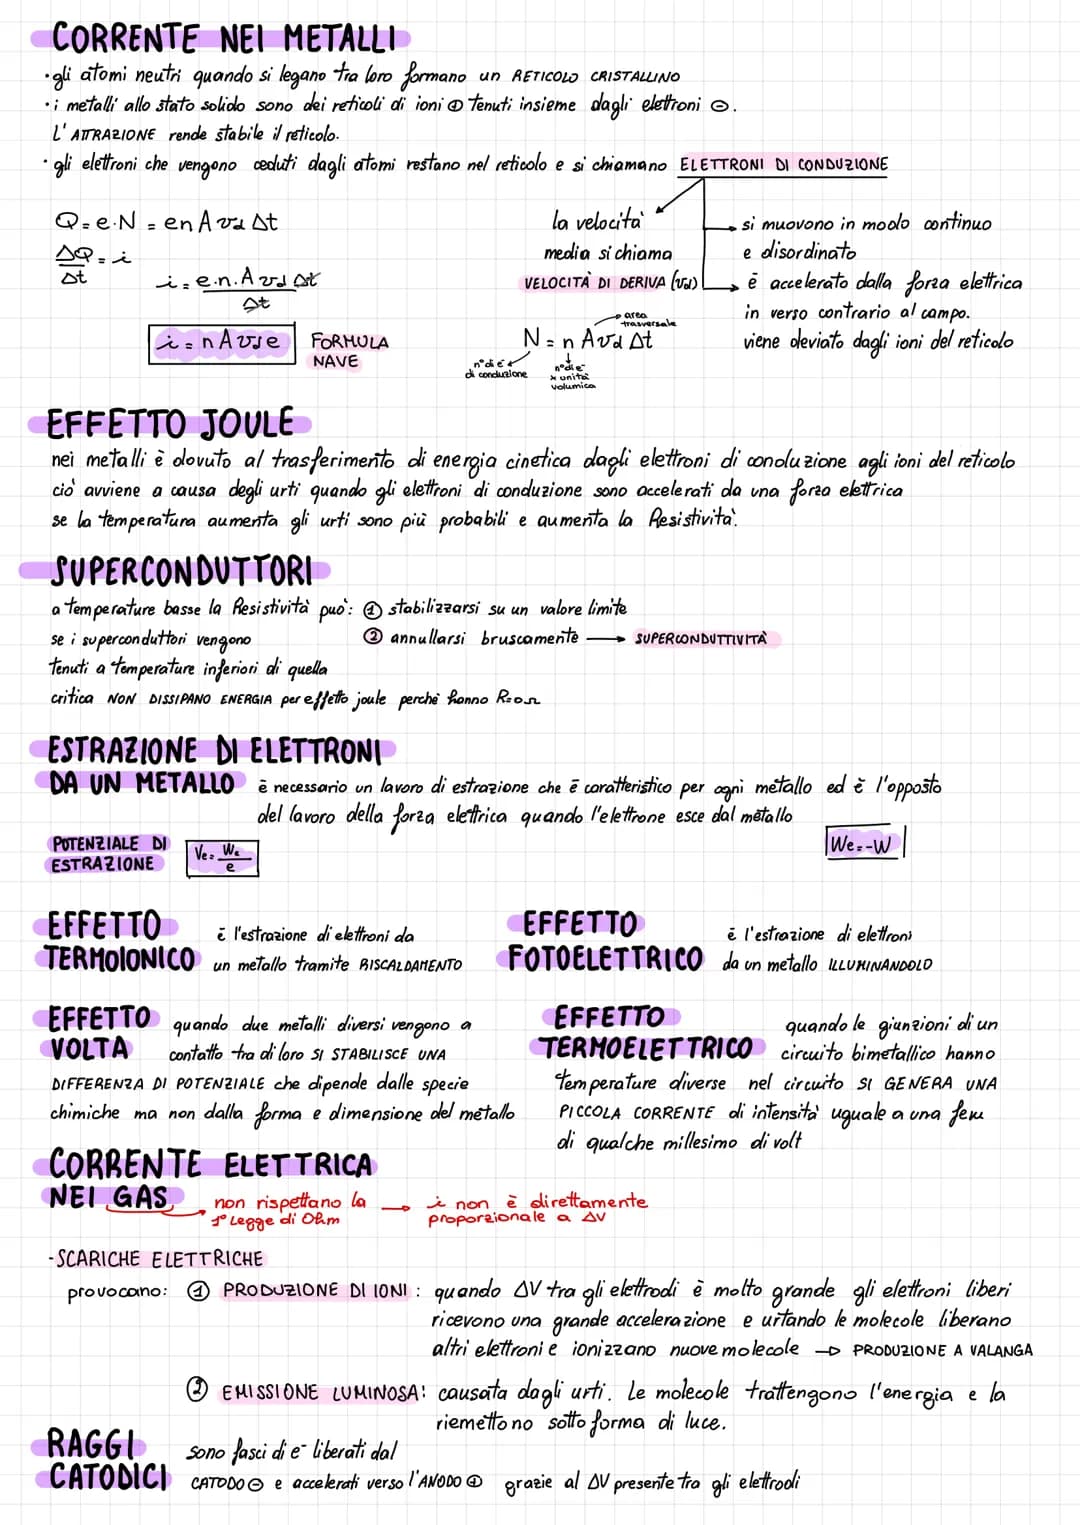 CORRENTE NEI METALLI
·gli atomi neutri quando si legano tra loro formano un RETICOLO CRISTALLINO
·i metalli allo stato solido sono dei reticoli di ioni ⊕ tenuti insieme dagli elettroni ⊖.
L'ATTRAZIONE rende stabile il reticolo.
·gli elettroni che vengono ceduti dagli atomi restano nel reticolo e si chiamano ELETTRONI DI CONDUZIONE
Q=e·N = enAvdΔt
ΔQ/Δt = i
i = e.n.AvdΔt/Δt
i = nAvde
FORMULA
NAVE
la velocità
media si chiama
VELOCITÀ DI DERIVA (vd)
N = nAvdΔt
area
trasversale
n°di e-
di conduzione
n°di e-
x unità
volumica
si muovono in modo continuo
e disordinato
è accelerato dalla forza elettrica
in verso contrario al campo.
viene deviato dagli ioni del reticolo
EFFETTO JOULE
nei metalli è dovuto al trasferimento di energia cinetica dagli elettroni di conduzione agli ioni del reticolo
ciò avviene a causa degli urti quando gli elettroni di conduzione sono accelerati da una forza elettrica
se la temperatura aumenta gli urti sono più probabili e aumenta la Resistività.
SUPERCONDUTTORI
a temperature basse la Resistività può: ① stabilizzarsi su un valore limite
② annullarsi bruscamente → SUPERCONDUTTIVITÀ
se i superconduttori vengono
tenuti a temperature inferiori di quella
critica NON DISSIPANO ENERGIA per effetto joule perchè hanno R=0Ω
ESTRAZIONE DI ELETTRONI
DA UN METALLO è necessario un lavoro di estrazione che è caratteristico per ogni metallo ed è l'opposto
del lavoro della forza elettrica quando l'elettrone esce dal metallo
POTENZIALE DI
ESTRAZIONE
Ve = We/e
We=-W
EFFETTO
TERMOIONICO
è l'estrazione di elettroni da
un metallo tramite RISCALDAMENTO
EFFETTO
FOTOELETTRICO
è l'estrazione di elettroni
da un metallo ILLUMINANDOLO
EFFETTO
VOLTA
quando due metalli diversi vengono a
contatto tra di loro SI STABILISCE UNA
DIFFERENZA DI POTENZIALE che dipende dalle specie
chimiche ma non dalla forma e dimensione del metallo
EFFETTO
TERMOELETTRICO
quando le giunzioni di un
circuito bimetallico hanno
temperature diverse nel circuito SI GENERA UNA
PICCOLA CORRENTE di intensità uguale a una fem
di qualche millesimo di volt
CORRENTE ELETTRICA
NEI GAS
non rispettano la
1° Legge di Ohm
→ i non è direttamente
proporzionale a ΔV
-SCARICHE ELETTRICHE
provocano: ① PRODUZIONE DI IONI: quando ΔV tra gli elettrodi è molto grande gli elettroni liberi
ricevono una grande accelerazione e urtando le molecole liberano
altri elettroni e ionizzano nuove molecole → PRODUZIONE A VALANGA
② EMISSIONE LUMINOSA: causata dagli urti. Le molecole trattengono l'energia e la
riemettono sotto forma di luce.
RAGGI
CATODICI
sono fasci di e- liberati dal
CATODO ⊖ e accelerati verso l'ANODO ⊕ grazie al ΔV presente tra gli elettrodi